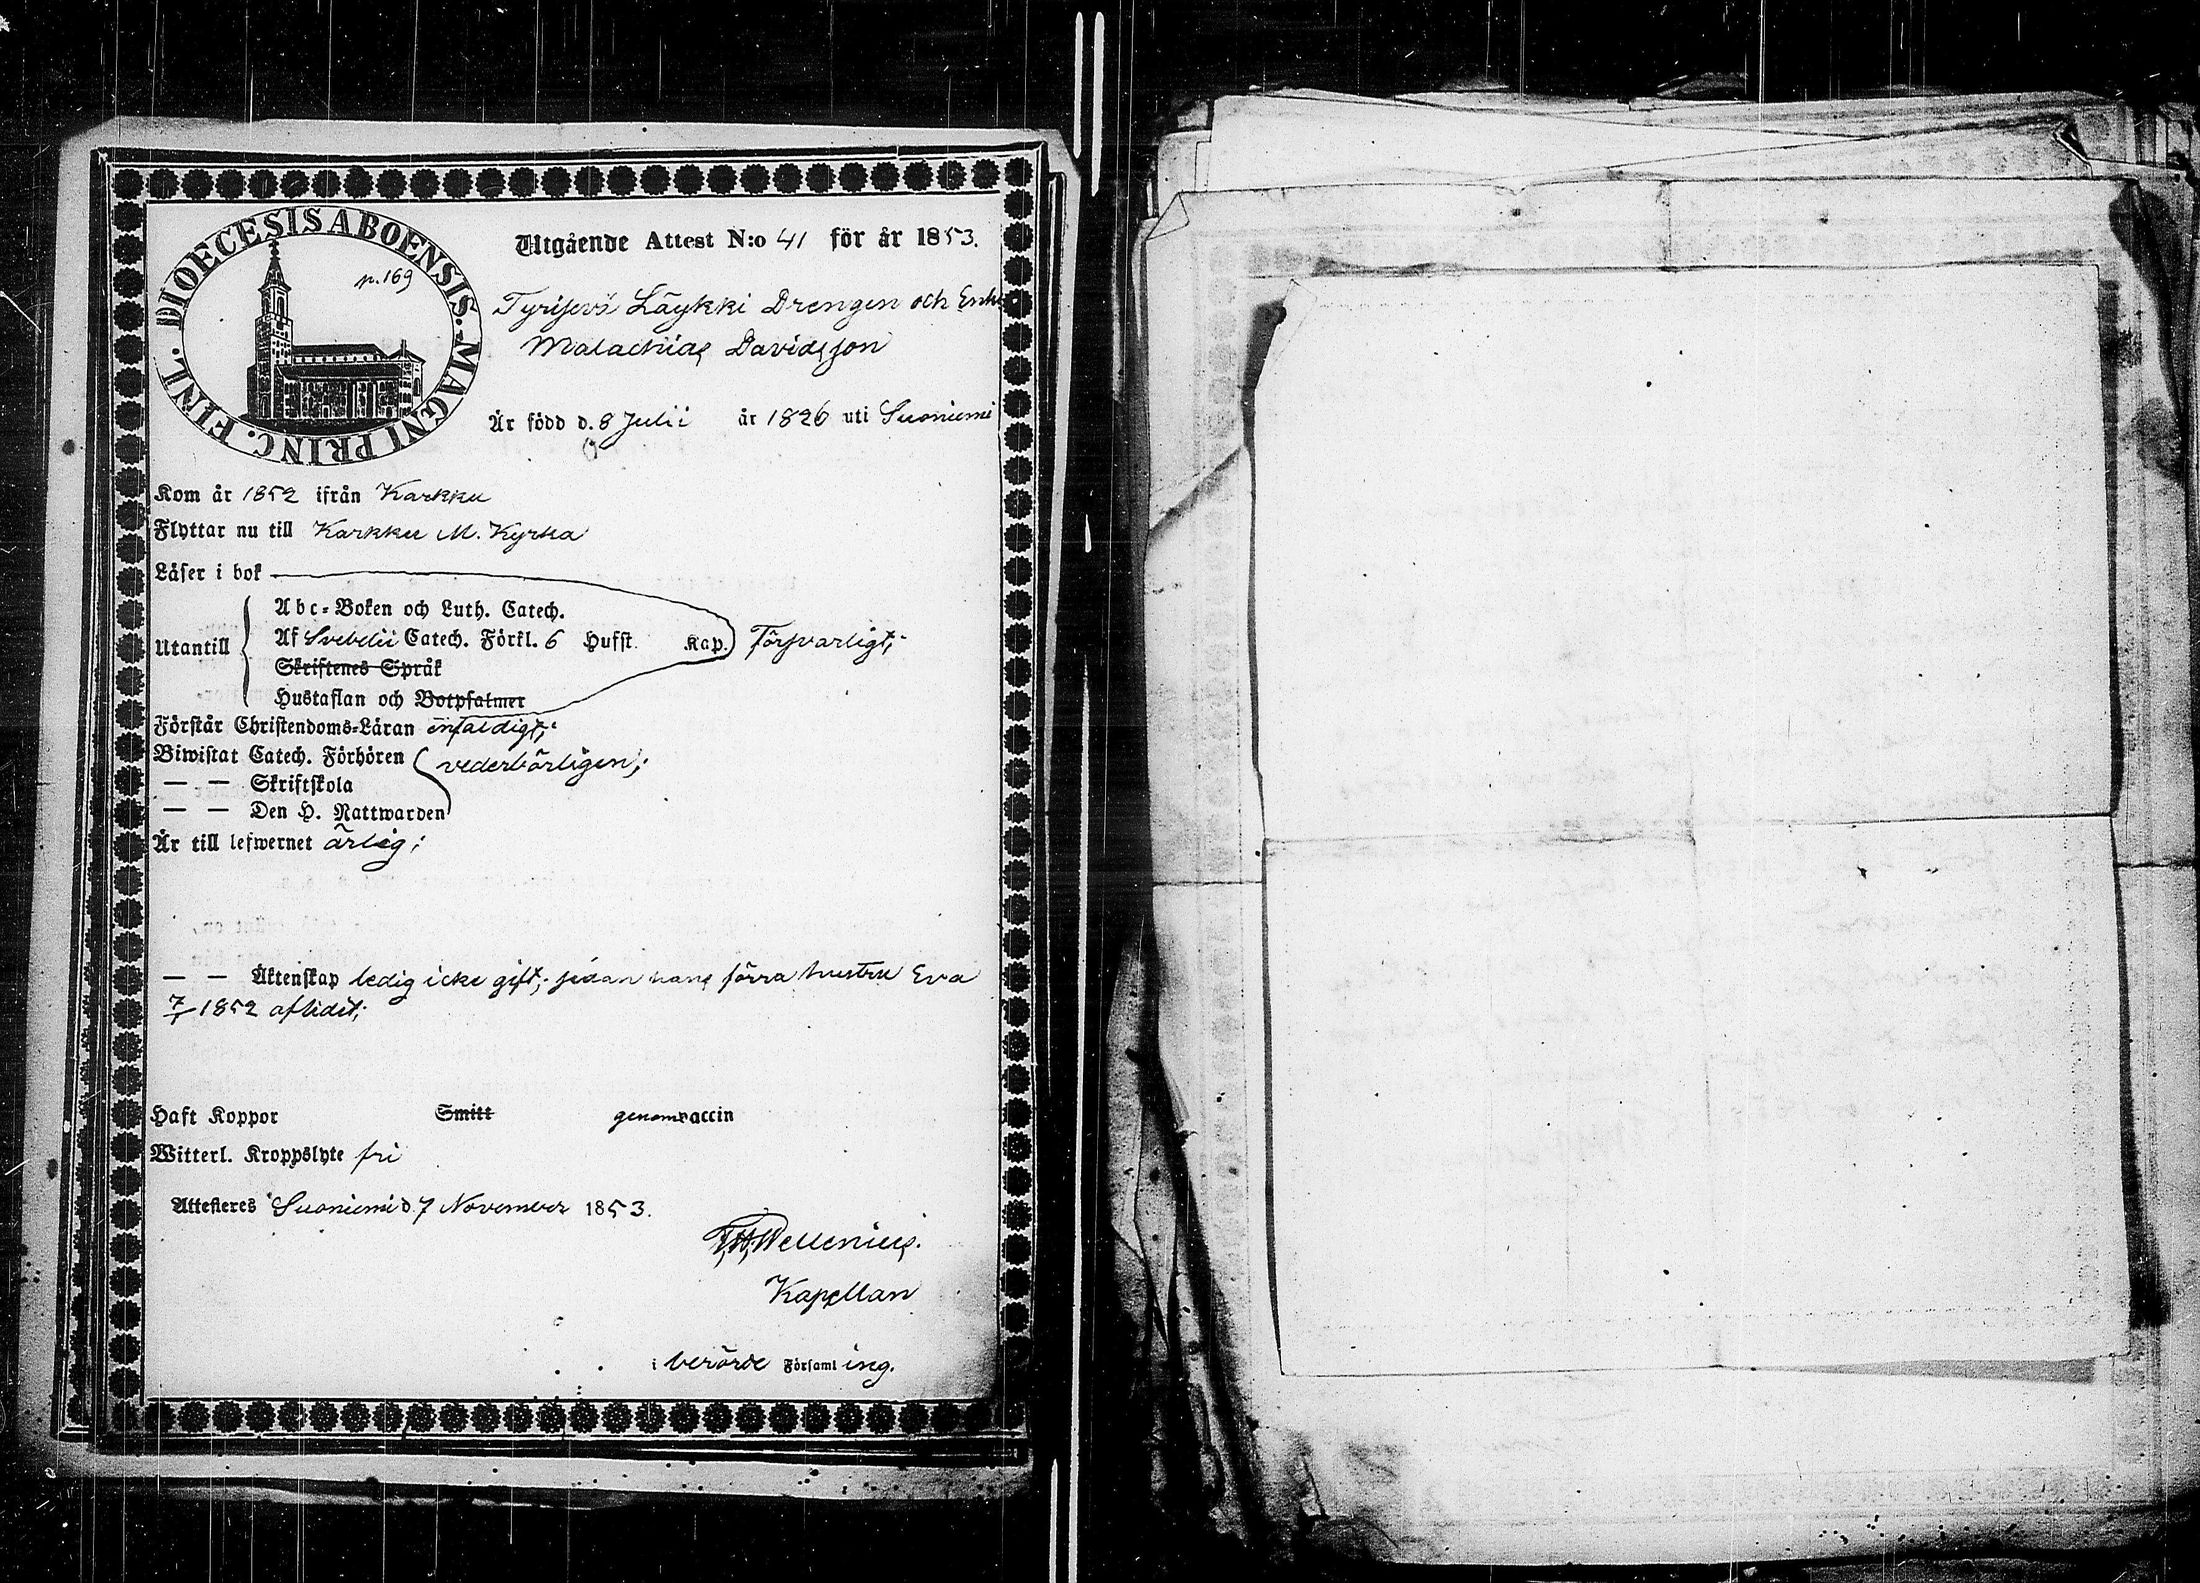 DIOECESIS ABOENSIS. MAGNI PRINC. FINL.
p. 169
Utgående Attest N:o 41 för år 1853.
Läykki Drengen och
Malachias Davidsson
Är född d. 8 Julii år 1826 uti Suoniemi
Kom år 1852 ifrån Karkku
Flyttar nu till Karkku M. Kyrka
Läser i bok
Utantill
Abc-Boken och Luth. Catech.
Af Svebelii Catech. Förkl. 6 Hufst. Kap. Försvarligt;
Skriftenes Språk
Hustaflan och Botpsalmer
Förstår Christendoms-Läran enfaldigt;
Biwistat Catech. Förhören vederbörligen;
— — Skriftskola
— — Den H. Nattwarden
Är till lefwernet ärlig;
— — Äktenskap ledig icke gift; sedan hans förra hustru Eva
1852 aflidit;
Haft Koppor Smitt genom vaccin
Witterl. Kroppslyte fri
Attesteres Suoniemi d. 7 November 1853.
Wellenius.
Kapellan
i berörde Församling.